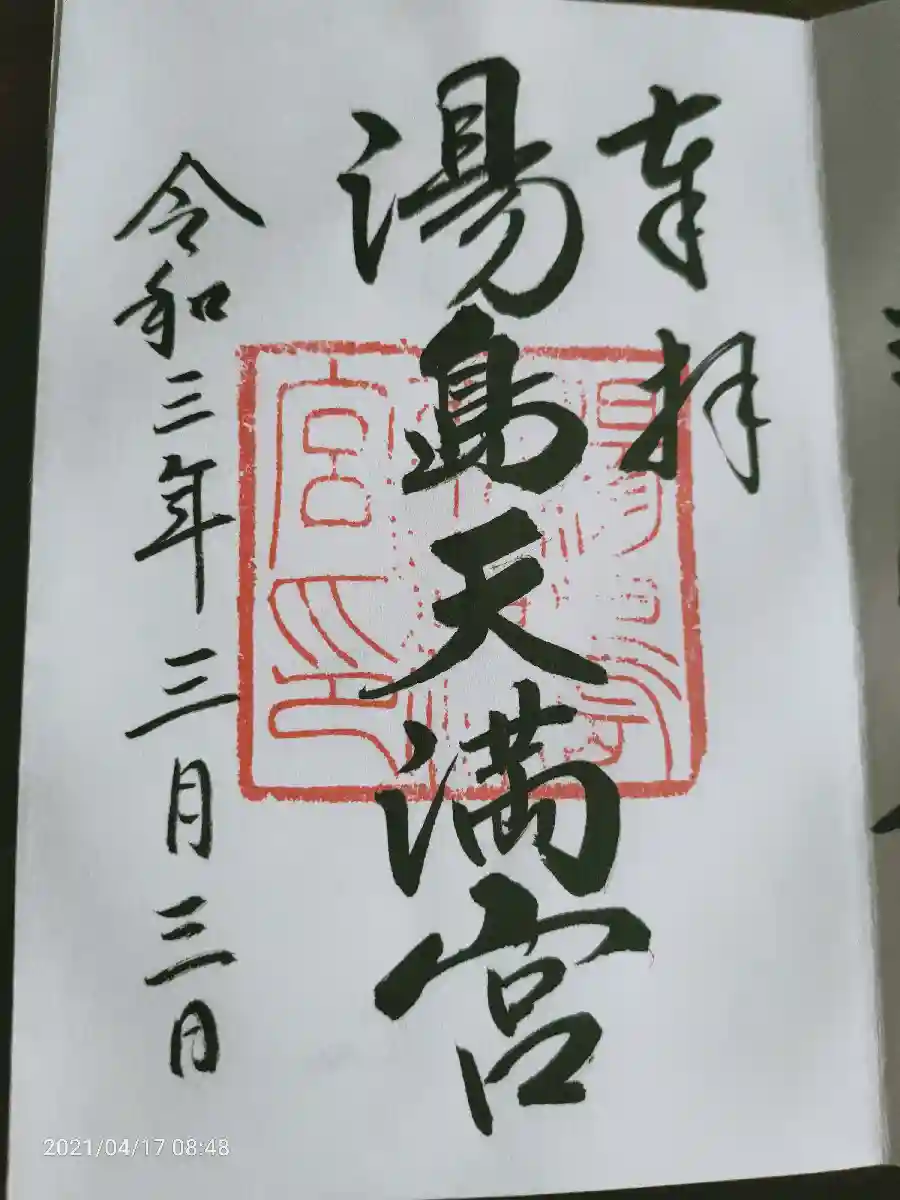 奉拝
湯島天満宮
令和三年三月三日
2021/04/17 08:48